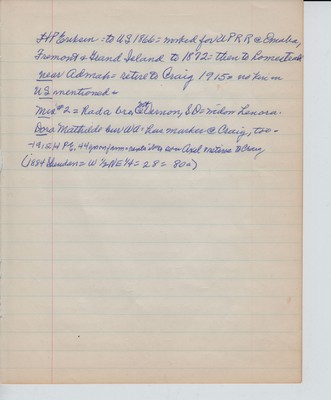 HP Erikson = to US 1866 = worked for UPRR @ Omaha,
Fremont & Grand Island to 1872 = then to homestead
near Admah = retire to Craig 1915 = no kin in
US mentioned =
Mrs #2 = had a bro @ Mt Vernon, S.D. = widow Lenora.
Dora Mathilde bur WA = has marker @ Craig, too =
- 1915 H P, 44 yrs on farm = rents to son Axel & retires to Craig
(1884 Sheridan = W ½ NE ¼ = 28 = 80a)